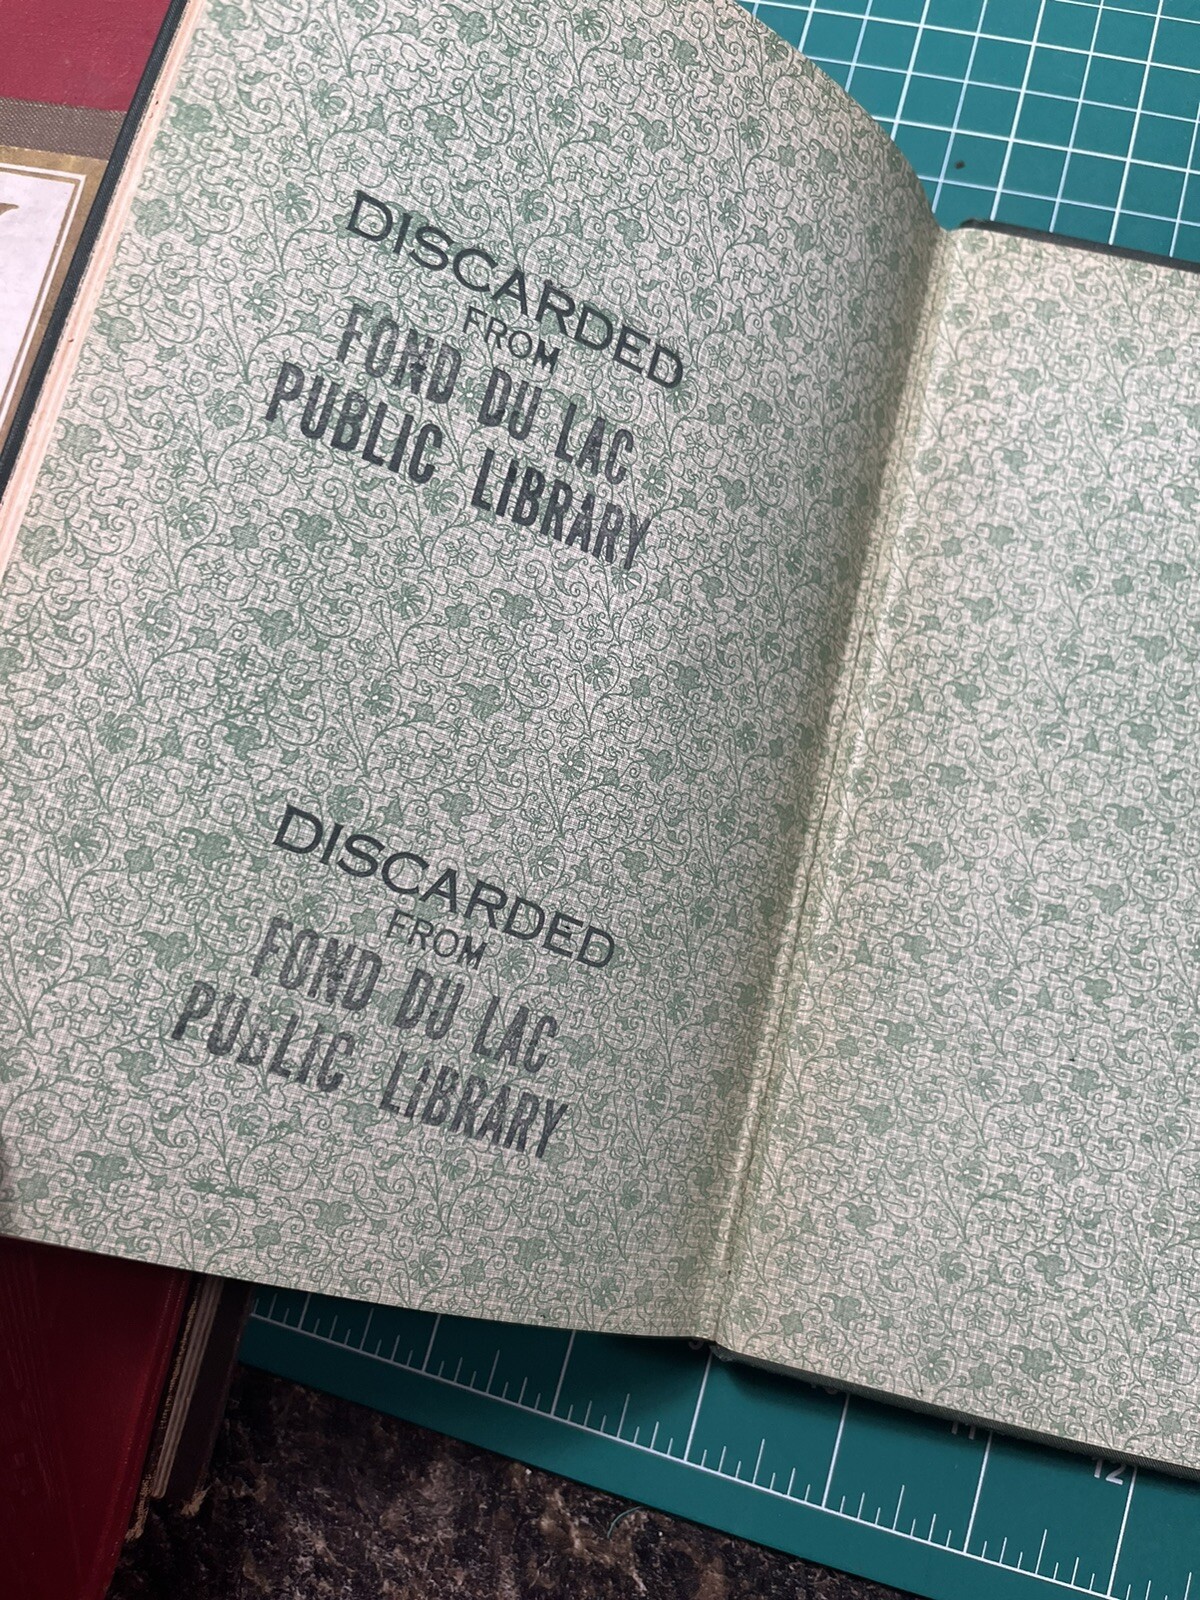 DISCARDED
FROM
FOND DU LAC
PUBLIC LIBRARY
DISCARDED
FROM
FOND DU LAC
PUBLIC LIBRARY
11
12